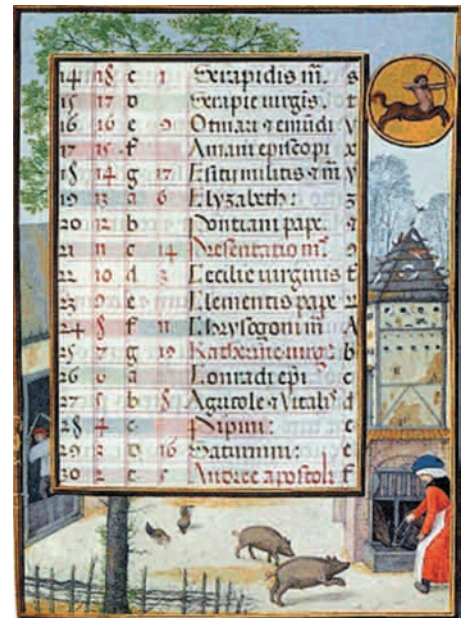 14 18 c 1 Serapidis m̄. s
15 17 d Serapie uirgis. t
16 16 e 9 Otmari ⁊ emūdi v
17 15 f Aniani episcopi x
18 14 g 17 militis ⁊ m̄ y
19 13 a 6 Elyzabeth: z
20 12 b Pontiani pape. ⁊
21 11 c 14 Presentatio m̄. 9
22 10 d 3 Cecilie uirginis
23 9 e Clementis pape
24 8 f 11 Chrysogoni m̄ A
25 7 g 19 Katherine uirg b
26 6 a Conradi ep̄i c
27 5 b 8 Agricole ⁊ Vitalis d
28 4 c e
29 3 d 16 Saturnini: e
30 2 e 5 Andree apostoli f